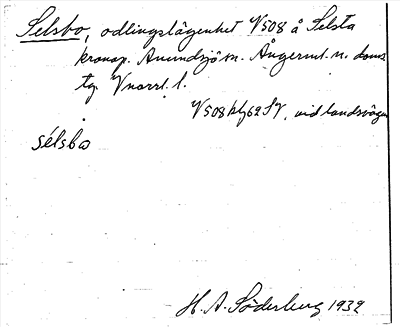 Selsbo, odlingslägenhet V508 å Selsta
kronop. Anundsjö sn. Ångerml. n. doms.
tg. Vnorrl. l.
V508 hfg62SV, vid landsvägen
sélsbω
H. A. Söderberg 1932